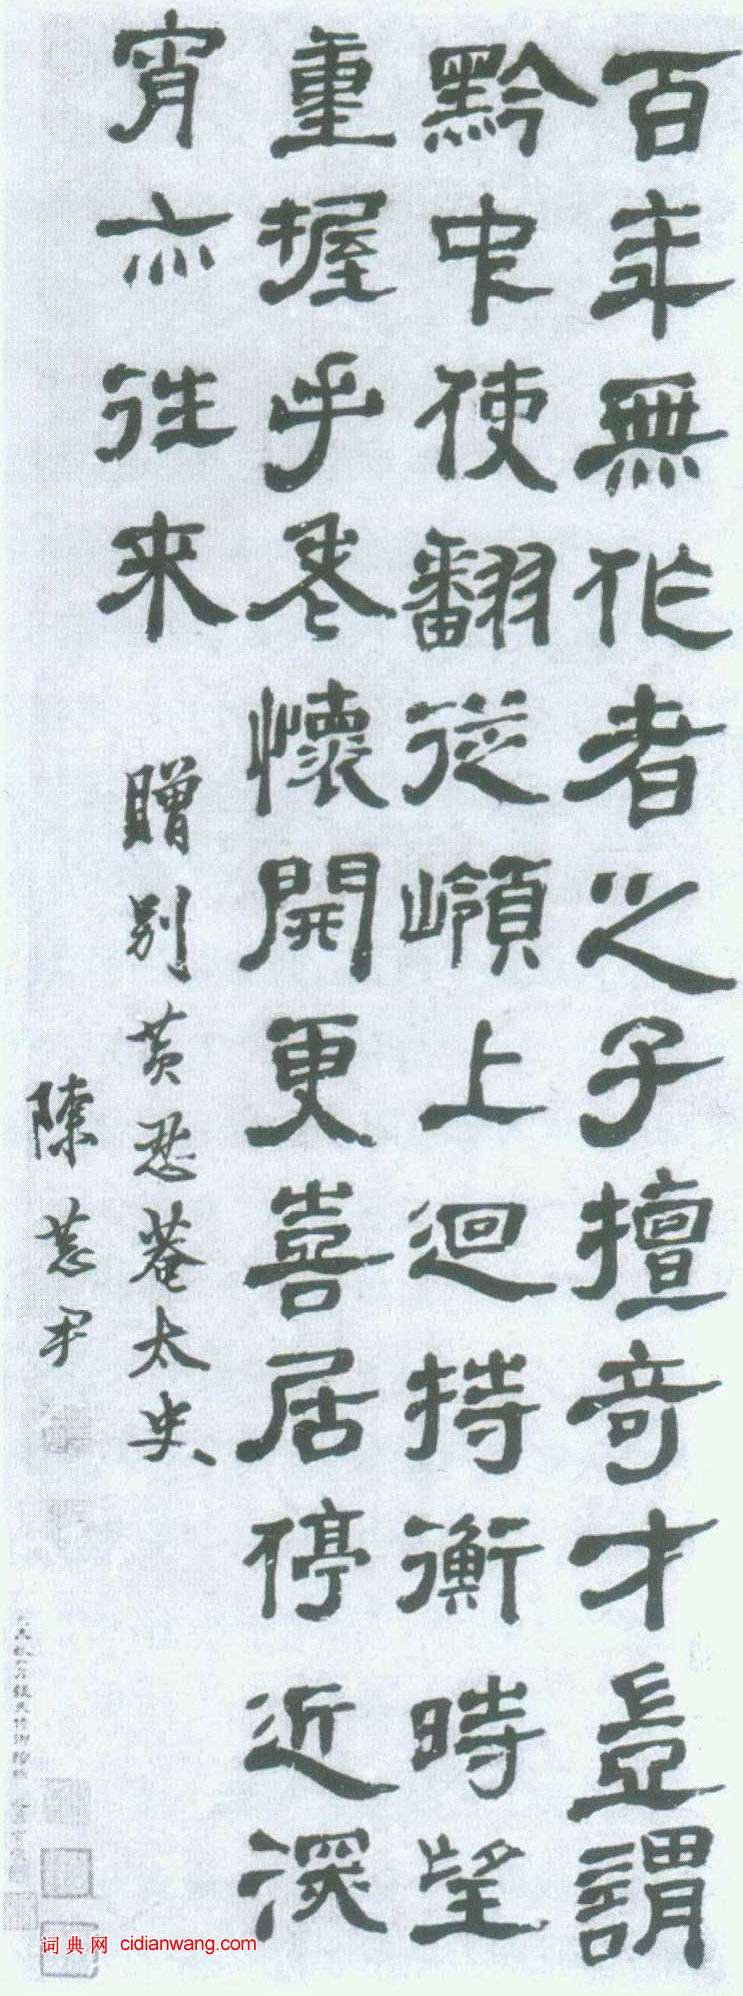 百年無作者之子擅奇才豈謂
黔中使翻從嶺上迴持衡時望
重握手卷懷開更喜居停近深
宵亦往來
贈別黃忍菴太史
陳恭尹
词典网 cidianwang.com